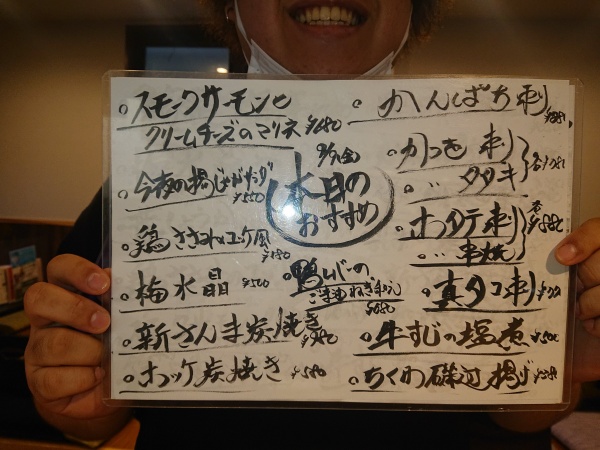 スモークサーモンと
クリームチーズのマリネ ¥680
今夜の揚じゃがサラダ
¥550
鶏ささみユッケ風
梅水晶 ¥500
新さんま炭焼き
ホッケ炭焼き ¥580
9/9(金)
本日の
おすすめ
鴨ムレの
ごまねぎ
¥680
かんぱち刺
かつを 刺
〃 タタキ
ホタテ刺
〃 串焼
真タコ刺
牛すじの塩煮 ¥500
ちくわ磯辺揚げ